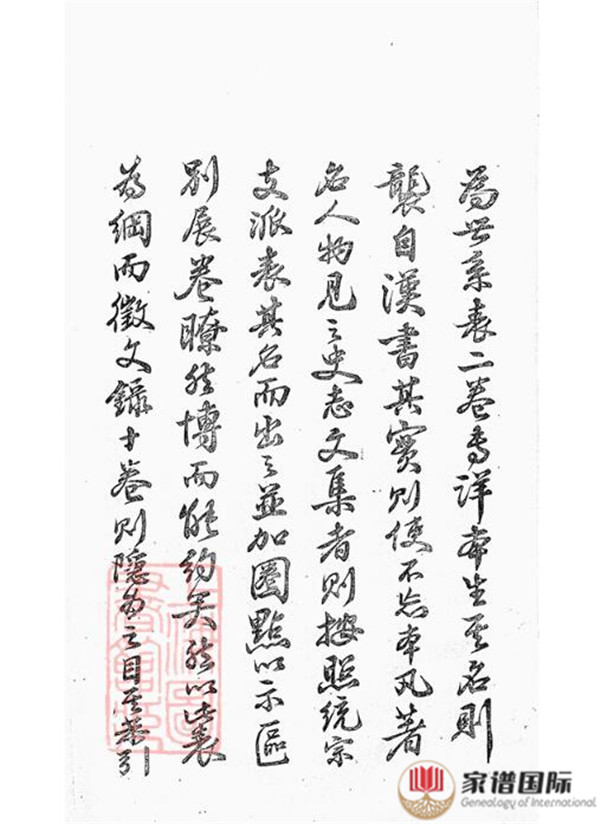 為世系表二卷專詳本生其名則
襲自漢書其實則使不忘本凡著
名人物見之史志文集者則按照統宗
支派表其名而出之並加圈點以示區
別展卷瞭然博而能約矣然以此表
為綱而徵文錄十卷則隱為之目其榘引
家谱国际
Genealogy of International